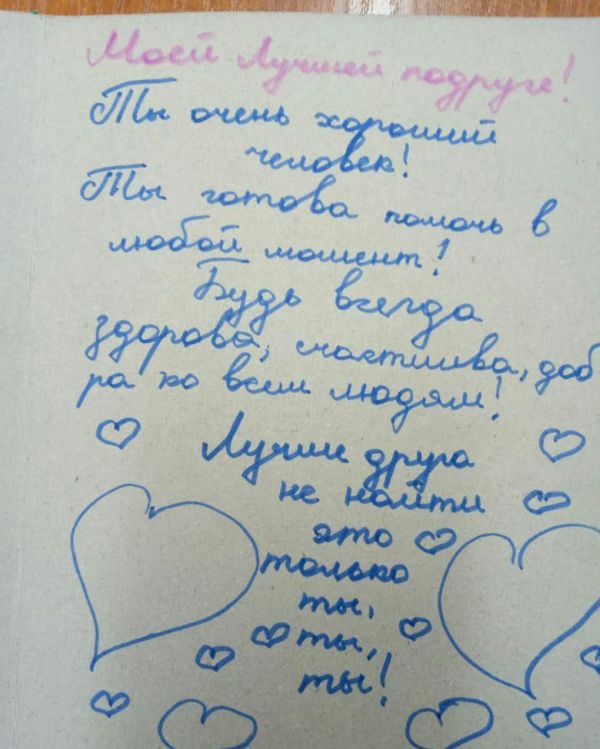 Моей Лучшей подруге!
Ты очень хороший
человек!
Ты готова помочь в
любой момент!
Будь всегда
здорова, счастлива, доб
ра ко всем людям!
Лучше друга
не найти
это
только
ты,
ты,
ты!